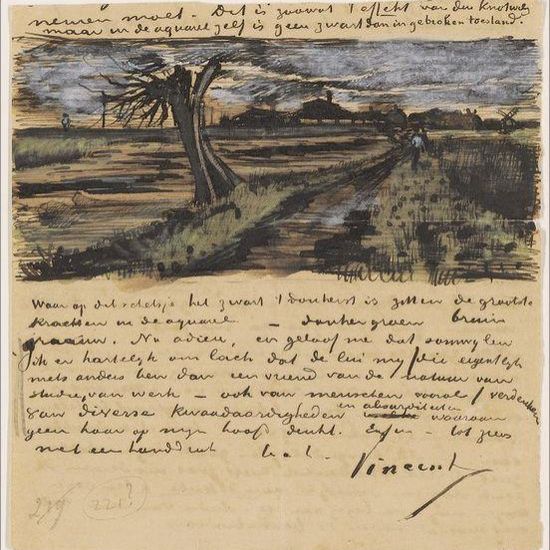 nemen moet. Dit is zoowat 't effekt van den Knotwilg
maar in de aquarel zelf is geen zwart dan in gebroken toestand.
Waar op dit schetsje het zwart 't donkerst is zitten de grootste
krachten in de aquarel – donkergroen bruin
graauw. Nu adieu, en geloof me dat somwylen
ik er hartelyk om lach dat de lui my /die eigentlyk
niets anders ben dan een vriend van de natuur van
studie, van werk – ook van menschen vooral/ verdenken
van diverse kwaadaardigheden en absurditeiten waaraan
geen haar op myn hoofd denkt. Enfin – tot ziens
met een handdruk t. à t.
Vincent
221?